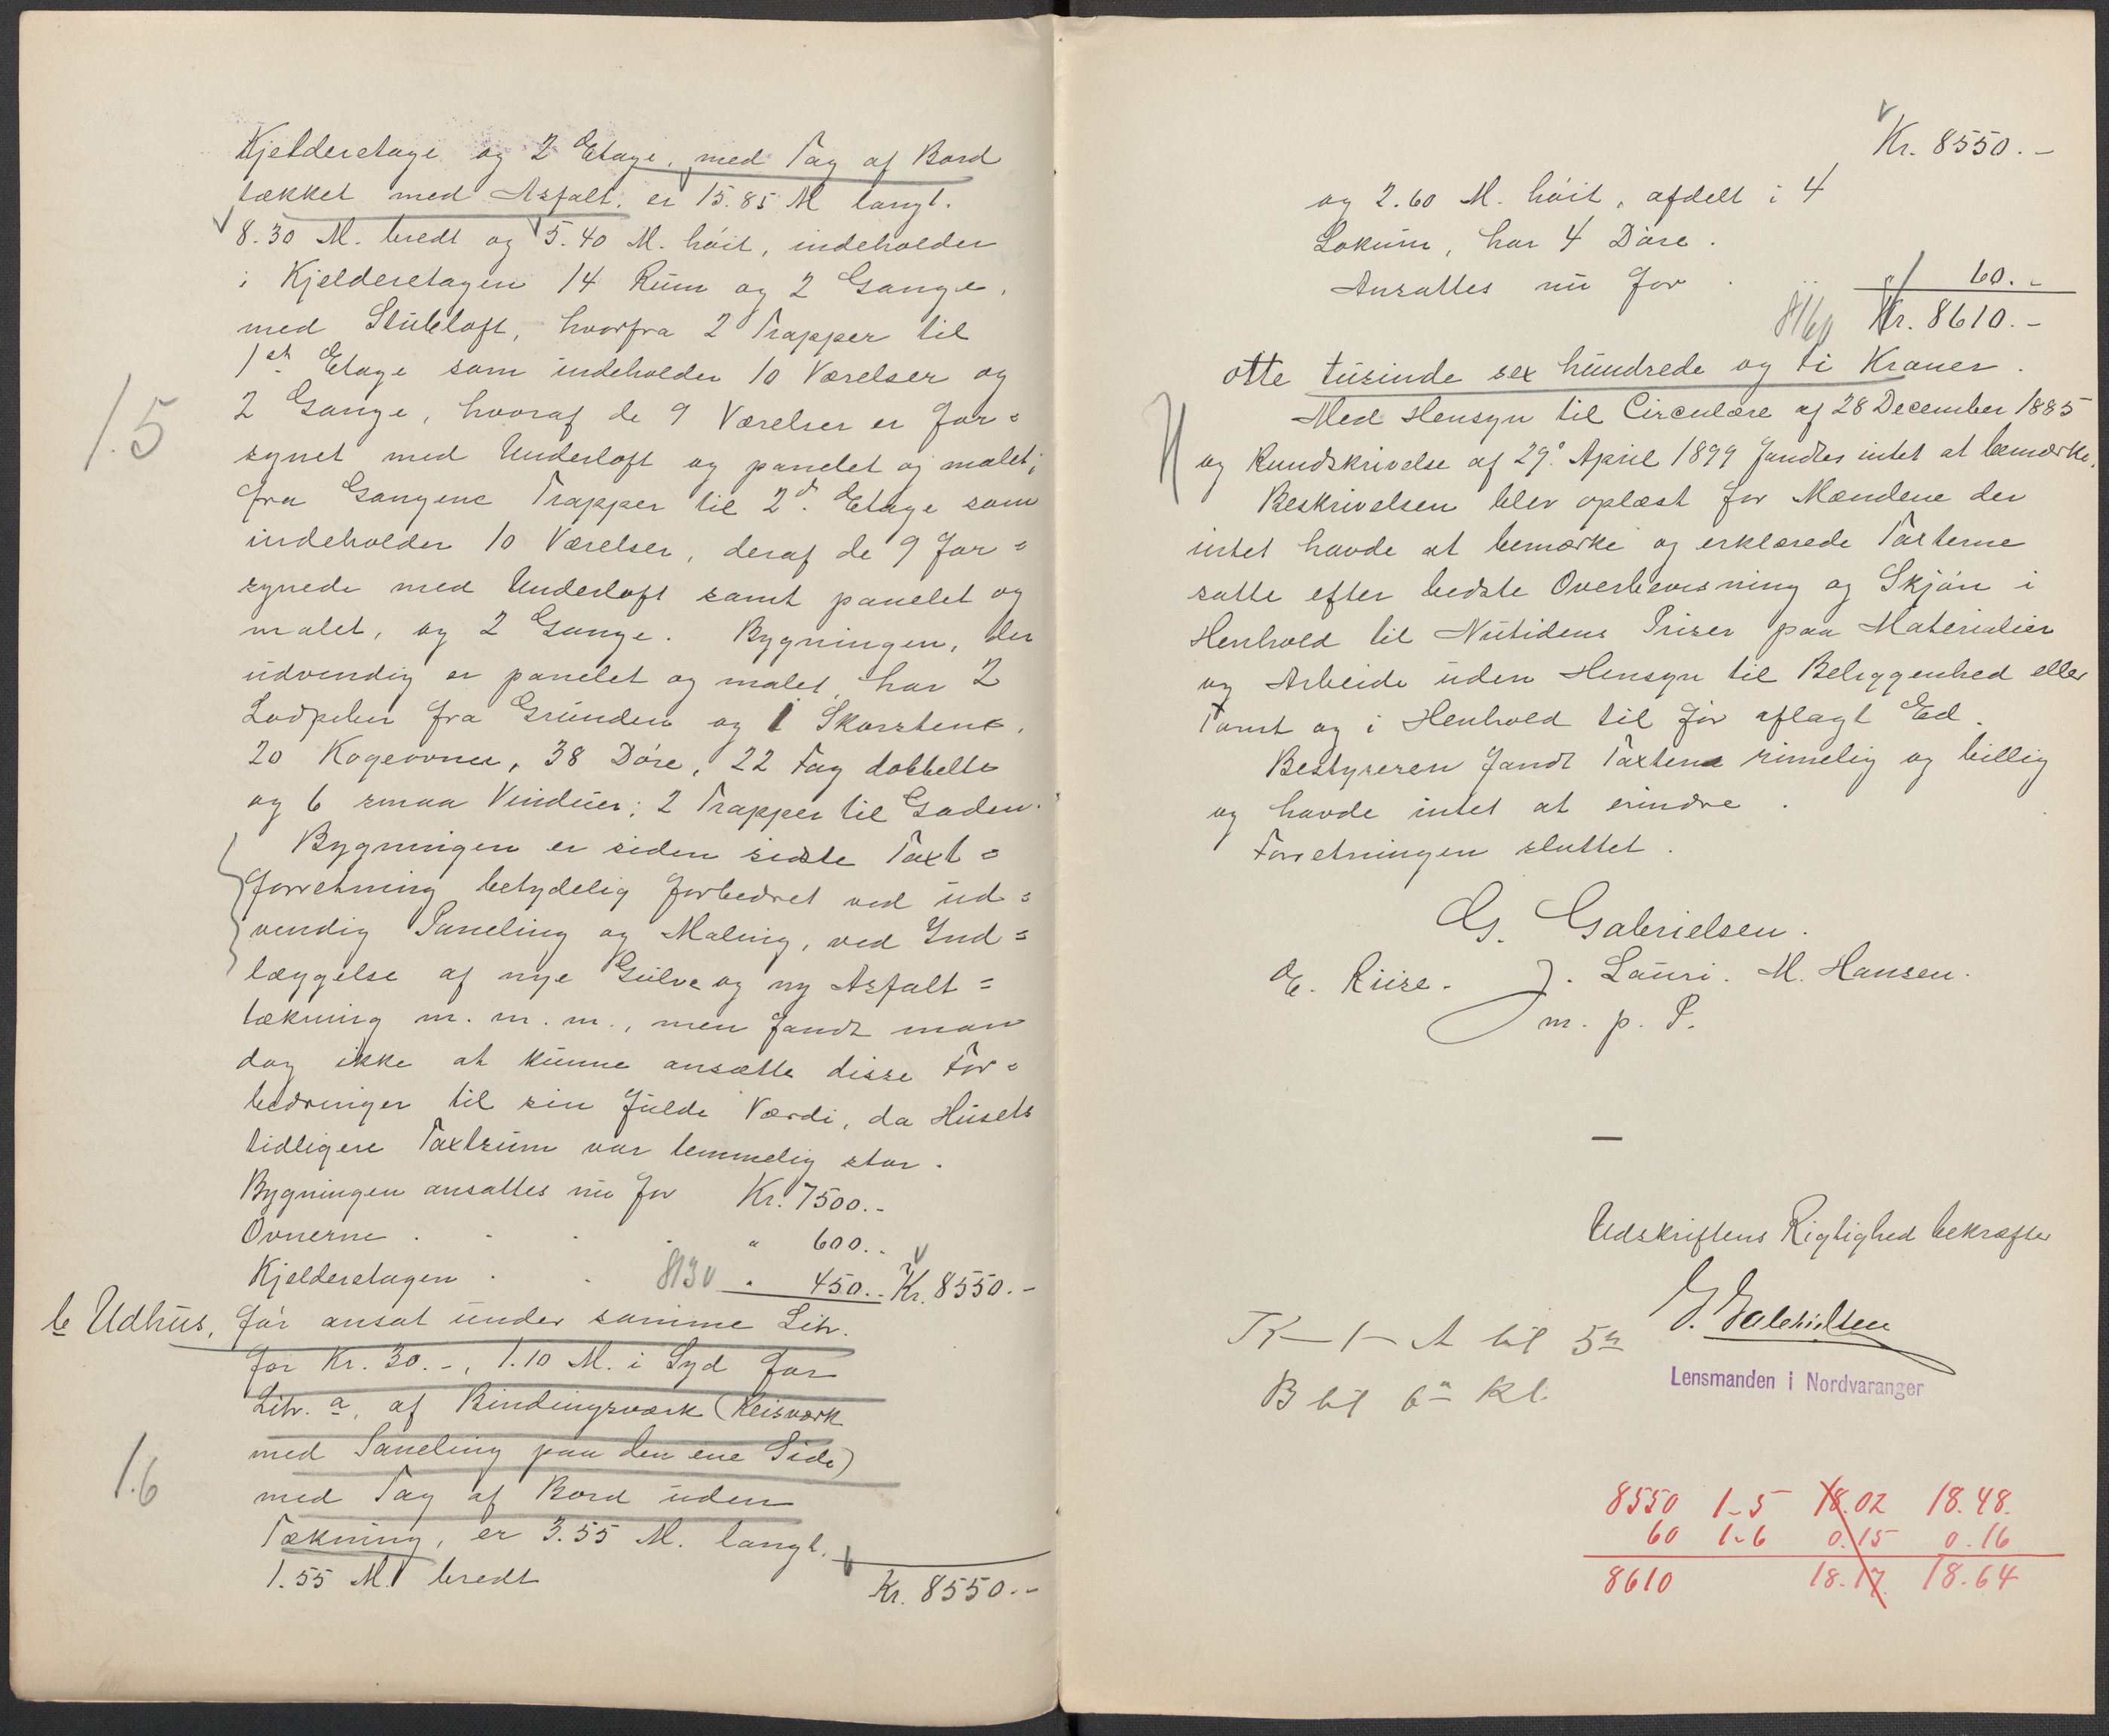 Kjelderetage og 2 Etage, med Tag af Bord
tækket med Asfalt, er 15.85 M langt.
8.30 M. bredt og 5.40 M. høit, indeholder
i Kjelderetagen 14 Rum og 2 Gange,
med Stubloft, hvorfra 2 Trapper til
1st Etage som indeholder 10 Værelser og
1.5
2 Gange, hvoraf de 9 Værelser er for=
synet med Underloft og panelet og malet;
fra Gangene Trapper til 2d. Etage som
indeholder 10 Værelser, deraf de 9 for=
synede med Underloft samt panelet og
malet, og 2 Gange. Bygningen, der
udvendig er panelet og malet, har 2
Lodpiber fra Grunden og 1 Skorsten,
20 Kogeovner, 38 Døre, 22 Fag dobbelte
og 6 smaa Vinduer; 2 Trapper til Gaden.
Bygningen er siden sidste Taxt=
forretning betydelig forbedret ved ud=
vendig Paneling og Maling, ved Ind=
læggelse af nye Gulve og ny Asfalt=
tækning m. m. m., men fandt man
dog ikke at kunne ansætte disse For=
bedringer til sin fulde Værdi, da Husets
tidligere Taxtsum var temmelig stor.
Bygningen ansattes nu for Kr. 7500.-
Ovnerne . . . . " 600.-
Kjelderetagen . . 8130 " 450.- Kr. 8550.-
b Udhus, før ansat under samme Litr.
for Kr. 30.-, 1.10 M. i Syd for
Litr. a, af Bindingsværk (Reisværk
med Paneling paa den ene Side)
1.6
med Tag af Bord uden
Tækning, er 3.55 M. langt,
1.55 M. bredt
Kr. 8550.-
Kr. 8550.-
og 2.60 M. høit, afdelt i 4
Lokum, har 4 Døre.
Ansattes nu for . . . 60.-
8160 Kr. 8610.-
otte tusinde sex hundrede og ti Kroner.
Med Hensyn til Circulære af 28 December 1885
og Rundskrivelse af 29. April 1899 fandtes intet at bemærke.
Beskrivelsen blev oplæst for Mændene der
intet havde at bemærke og erklærede Taxterne
satte efter bedste Overbevisning og Skjøn i
Henhold til Nutidens Priser paa Materialier
og Arbeide uden Hensyn til Beliggenhed eller
Tomt og i Henhold til før aflagt Ed.
Bestyreren fandt Taxten rimelig og billig
og havde intet at erindre.
Forretningen sluttet.
G. Gabrielsen.
E. Riise. J. Lauri. M. Hansen.
m. p. P.
Udskriftens Rigtighed bekræfter
G. Gabrielsen
Lensmanden i Nordvaranger
K-1- A til 5te
B til 6te Kl.
8550 1-5 18.02 18.48.
60 1-6 0.15 0.16
8610 18.17 18.64